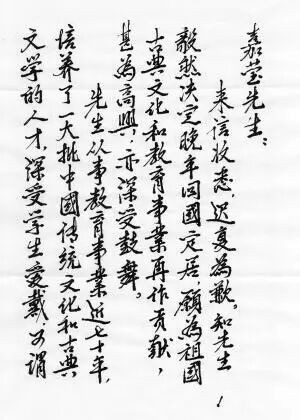 嘉莹先生：
来信收悉，迟复為歉。知先生
毅然决定晚年回國定居，願為祖國
古典文化和教育事業再作贡献，
甚為高興，亦深受鼓舞。
先生从事教育事業近七十年，
培养了一大批中國傳統文化和古典
文学的人才，深受学生爱戴，可谓
1